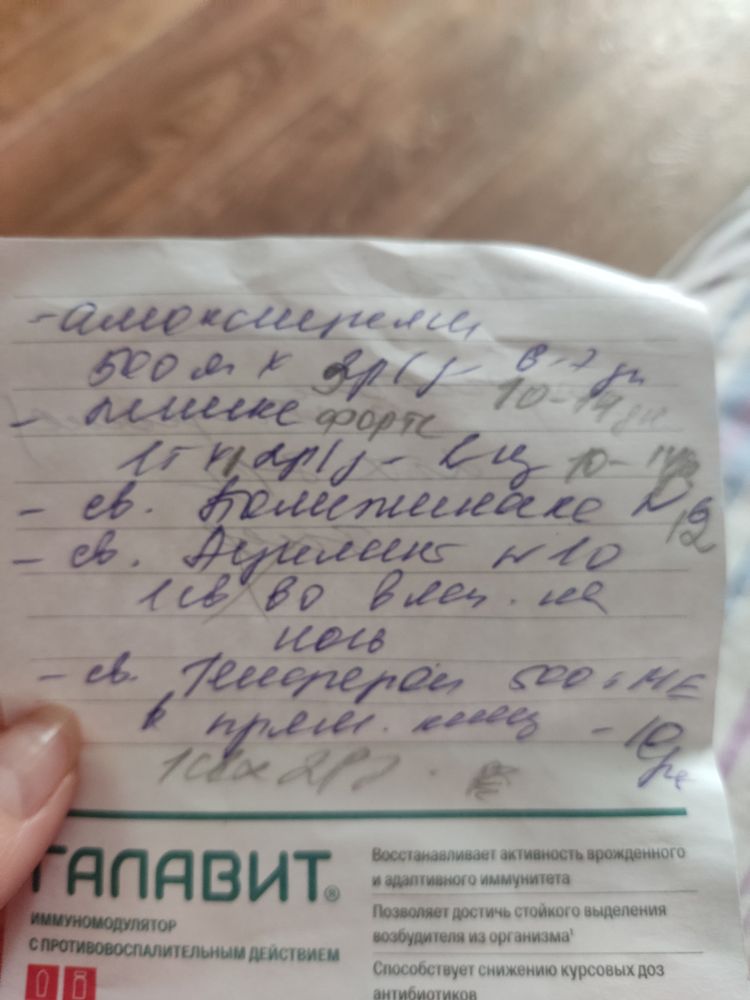 - амоксициллин
500 мг х 3р/д - 6-7 дн
10-14 дн
- линекс форте
1т х 2р/д - 2 нед 10-14
- св. Полижинакс №12
- св. Ацилакт №10
1 св во влаг. на
ночь
- св. Генферон 500 т МЕ
в прям. киш - 10 дн
1св х 2р
ГАЛАВИТ®
ИММУНОМОДУЛЯТОР
С ПРОТИВОВОСПАЛИТЕЛЬНЫМ ДЕЙСТВИЕМ
Восстанавливает активность врожденного
и адаптивного иммунитета
Позволяет достичь стойкого выделения
возбудителя из организма¹
Способствует снижению курсовых доз
антибиотиков